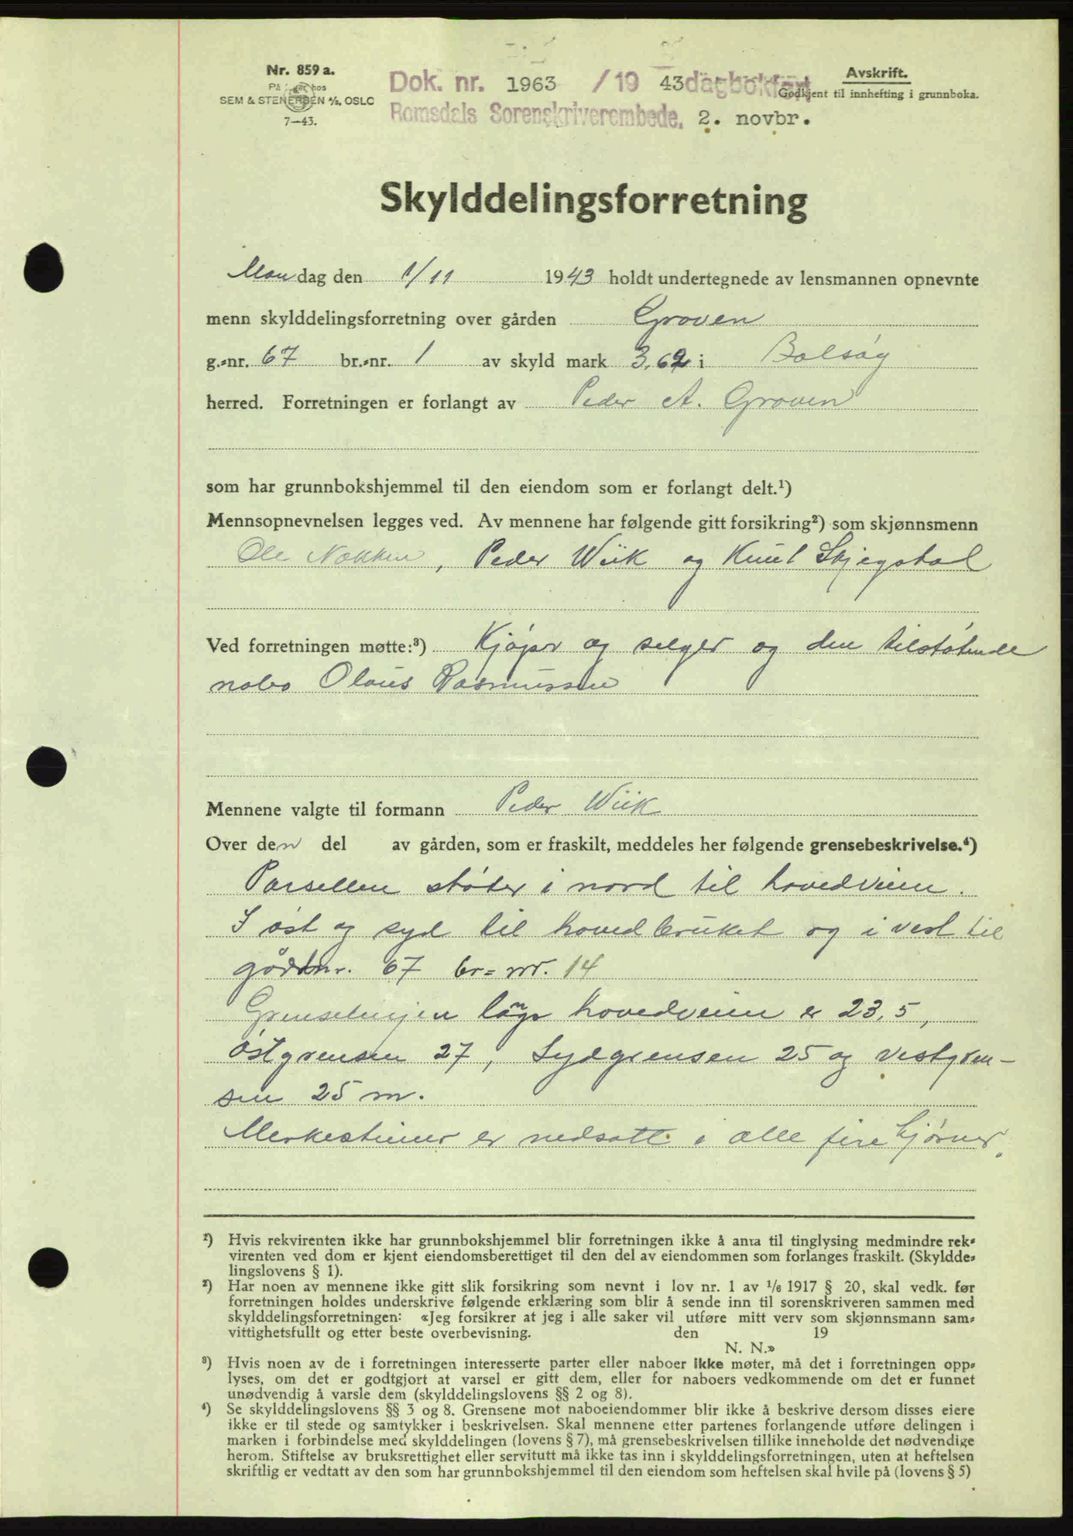 Nr. 859 a.
På lager hos
SEM & STENERSEN A/S, OSLO
7—43.
Dok. nr. 1963 /19 43 dagbokført
Romsdals Sorenskriverembede, 2. novbr.
Avskrift.
Godkjent til innhefting i grunnboka.
Skylddelingsforretning
Mandag den 1/11 1943 holdt undertegnede av lensmannen opnevnte
menn skylddelingsforretning over gården Groven
g.-nr. 67 br.-nr. 1 av skyld mark 3,62 i Bolsøy
herred. Forretningen er forlangt av Peder A. Groven
som har grunnbokshjemmel til den eiendom som er forlangt delt.¹)
Mennsopnevnelsen legges ved. Av mennene har følgende gitt forsikring²) som skjønnsmenn
Ole Nakken, Peder Wiik og Knut Skjegstad
Ved forretningen møtte:³) Kjøper og selger og den tilstøtende
nabo Olaus Rasmussen
Mennene valgte til formann Peder Wiik
Over den del av gården, som er fraskilt, meddeles her følgende grensebeskrivelse.⁴)
Parsellen støter i nord til hovedveien.
I øst og syd til hovedbruket og i vest til
gårdsnr. 67 br=nr. 14
Grenselinjen langs hovedveien er 23,5,
østgrensen 27, Sydgrensen 25 og vestgren-
sen 25 m.
Merkesteiner er nedsatt i alle fire hjørner.
¹) Hvis rekvirenten ikke har grunnbokshjemmel blir forretningen ikke å anta til tinglysing medmindre rek-
virenten ved dom er kjent eiendomsberettiget til den del av eiendommen som forlanges fraskilt. (Skyldde-
lingslovens § 1).
²) Har noen av mennene ikke gitt slik forsikring som nevnt i lov nr. 1 av 1/6 1917 § 20, skal vedk. før
forretningen holdes underskrive følgende erklæring som blir å sende inn til sorenskriveren sammen med
skylddelingsforretningen: «Jeg forsikrer at jeg i alle saker vil utføre mitt verv som skjønnsmann sam-
vittighetsfullt og etter beste overbevisning. den 19
N. N.»
³) Hvis noen av de i forretningen interesserte parter eller naboer ikke møter, må det i forretningen opp-
lyses, om det er godtgjort at varsel er gitt dem, eller for naboers vedkommende om det er funnet
unødvendig å varsle dem (skylddelingslovens §§ 2 og 8).
⁴) Se skylddelingslovens §§ 3 og 8. Grensene mot naboeiendommer blir ikke å beskrive dersom disses eiere
ikke er til stede og samtykker i beskrivelsen. Skal mennene etter partenes forlangende utføre delingen i
marken i forbindelse med skylddelingen (lovens § 7), må grensebeskrivelsen tillike inneholde det nødvendige
herom. Stiftelse av bruksrettighet eller servitutt må ikke tas inn i skylddelingsforretningen, uten at heftelsen
skriftlig er vedtatt av den som har grunnbokshjemmel til den eiendom som heftelsen skal hvile på (lovens § 5)